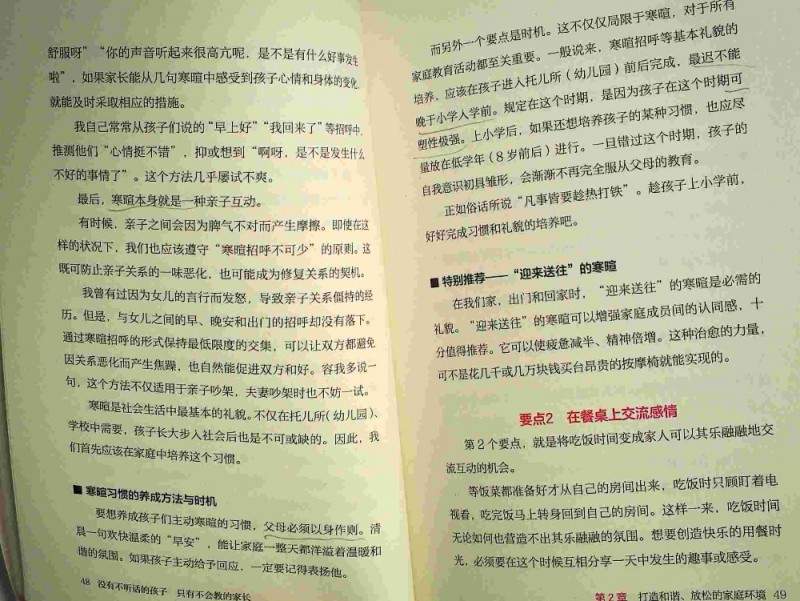 舒服呀”“你的声音听起来很高亢呢，是不是有什么好事发生
啦”，如果家长能从几句寒暄中感受到孩子心情和身体的变化，
就能及时采取相应的措施。
我自己常常从孩子们说的“早上好”“我回来了”等招呼中，
推测他们“心情挺不错”，抑或想到“啊呀，是不是发生什么
不好的事情了”。这个方法几乎屡试不爽。
最后，寒暄本身就是一种亲子互动。
有时候，亲子之间会因为脾气不对而产生摩擦。即使在这
样的状况下，我们也应该遵守“寒暄招呼不可少”的原则。这
既可防止亲子关系的一味恶化，也可能成为修复关系的契机。
我曾有过因为女儿的言行而发怒，导致亲子关系僵持的经
历。但是，与女儿之间的早、晚安和出门的招呼却没有落下。
通过寒暄招呼的形式保持最低限度的交集，可以让双方都避免
因关系恶化而产生焦躁，也自然能促进双方和好。容我多说一
句，这个方法不仅适用于亲子吵架，夫妻吵架时也不妨一试。
寒暄是社会生活中最基本的礼貌。不仅在托儿所（幼儿园）、
学校中需要，孩子长大步入社会后也是不可或缺的。因此，我
们首先应该在家庭中培养这个习惯。
■ 寒暄习惯的养成方法与时机
要想养成孩子们主动寒暄的习惯，父母必须以身作则。清
晨一句欢快温柔的“早安”，能让家庭一整天都洋溢着温暖和
谐的氛围。如果孩子主动给予回应，一定要记得表扬他。
48 没有不听话的孩子 只有不会教的家长
而另外一个要点是时机。这不仅仅局限于寒暄，对于所有
家庭教育活动都至关重要。一般说来，寒暄招呼等基本礼貌的
培养，应该在孩子进入托儿所（幼儿园）前后完成，最迟不能
晚于小学入学前。规定在这个时期，是因为孩子在这个时期可
塑性极强。上小学后，如果还想培养孩子的某种习惯，也应尽
量放在低学年（8岁前后）进行。一旦错过这个时期，孩子的
自我意识初具雏形，会渐渐不再完全服从父母的教育。
正如俗话所说“凡事皆要趁热打铁”。趁孩子上小学前，
好好完成习惯和礼貌的培养吧。
■ 特别推荐——“迎来送往”的寒暄
在我们家，出门和回家时，“迎来送往”的寒暄是必需的
礼貌。“迎来送往”的寒暄可以增强家庭成员间的认同感，十
分值得推荐。它可以使疲惫减半、精神倍增。这种治愈的力量，
可不是花几千或几万块钱买台昂贵的按摩椅就能实现的。
要点2 在餐桌上交流感情
第2个要点，就是将吃饭时间变成家人可以其乐融融地交
流互动的机会。
等饭菜都准备好才从自己的房间出来，吃饭时只顾盯着电
视看，吃完饭马上转身回到自己的房间。这样一来，吃饭时间
无论如何也营造不出其乐融融的氛围。想要创造快乐的用餐时
光，必须要在这个时候互相分享一天中发生的趣事或感受。
第2章 打造和谐、放松的家庭环境 49